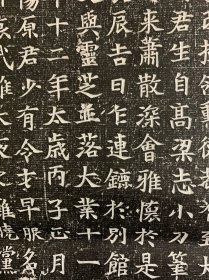 君生自高梁志小刀筆
來蕭散深會雅懷於是
辰吉日乍連鑣於別館
與靈芝並落大業十一
十二年太歲丙子正月
原君少有令才早服名